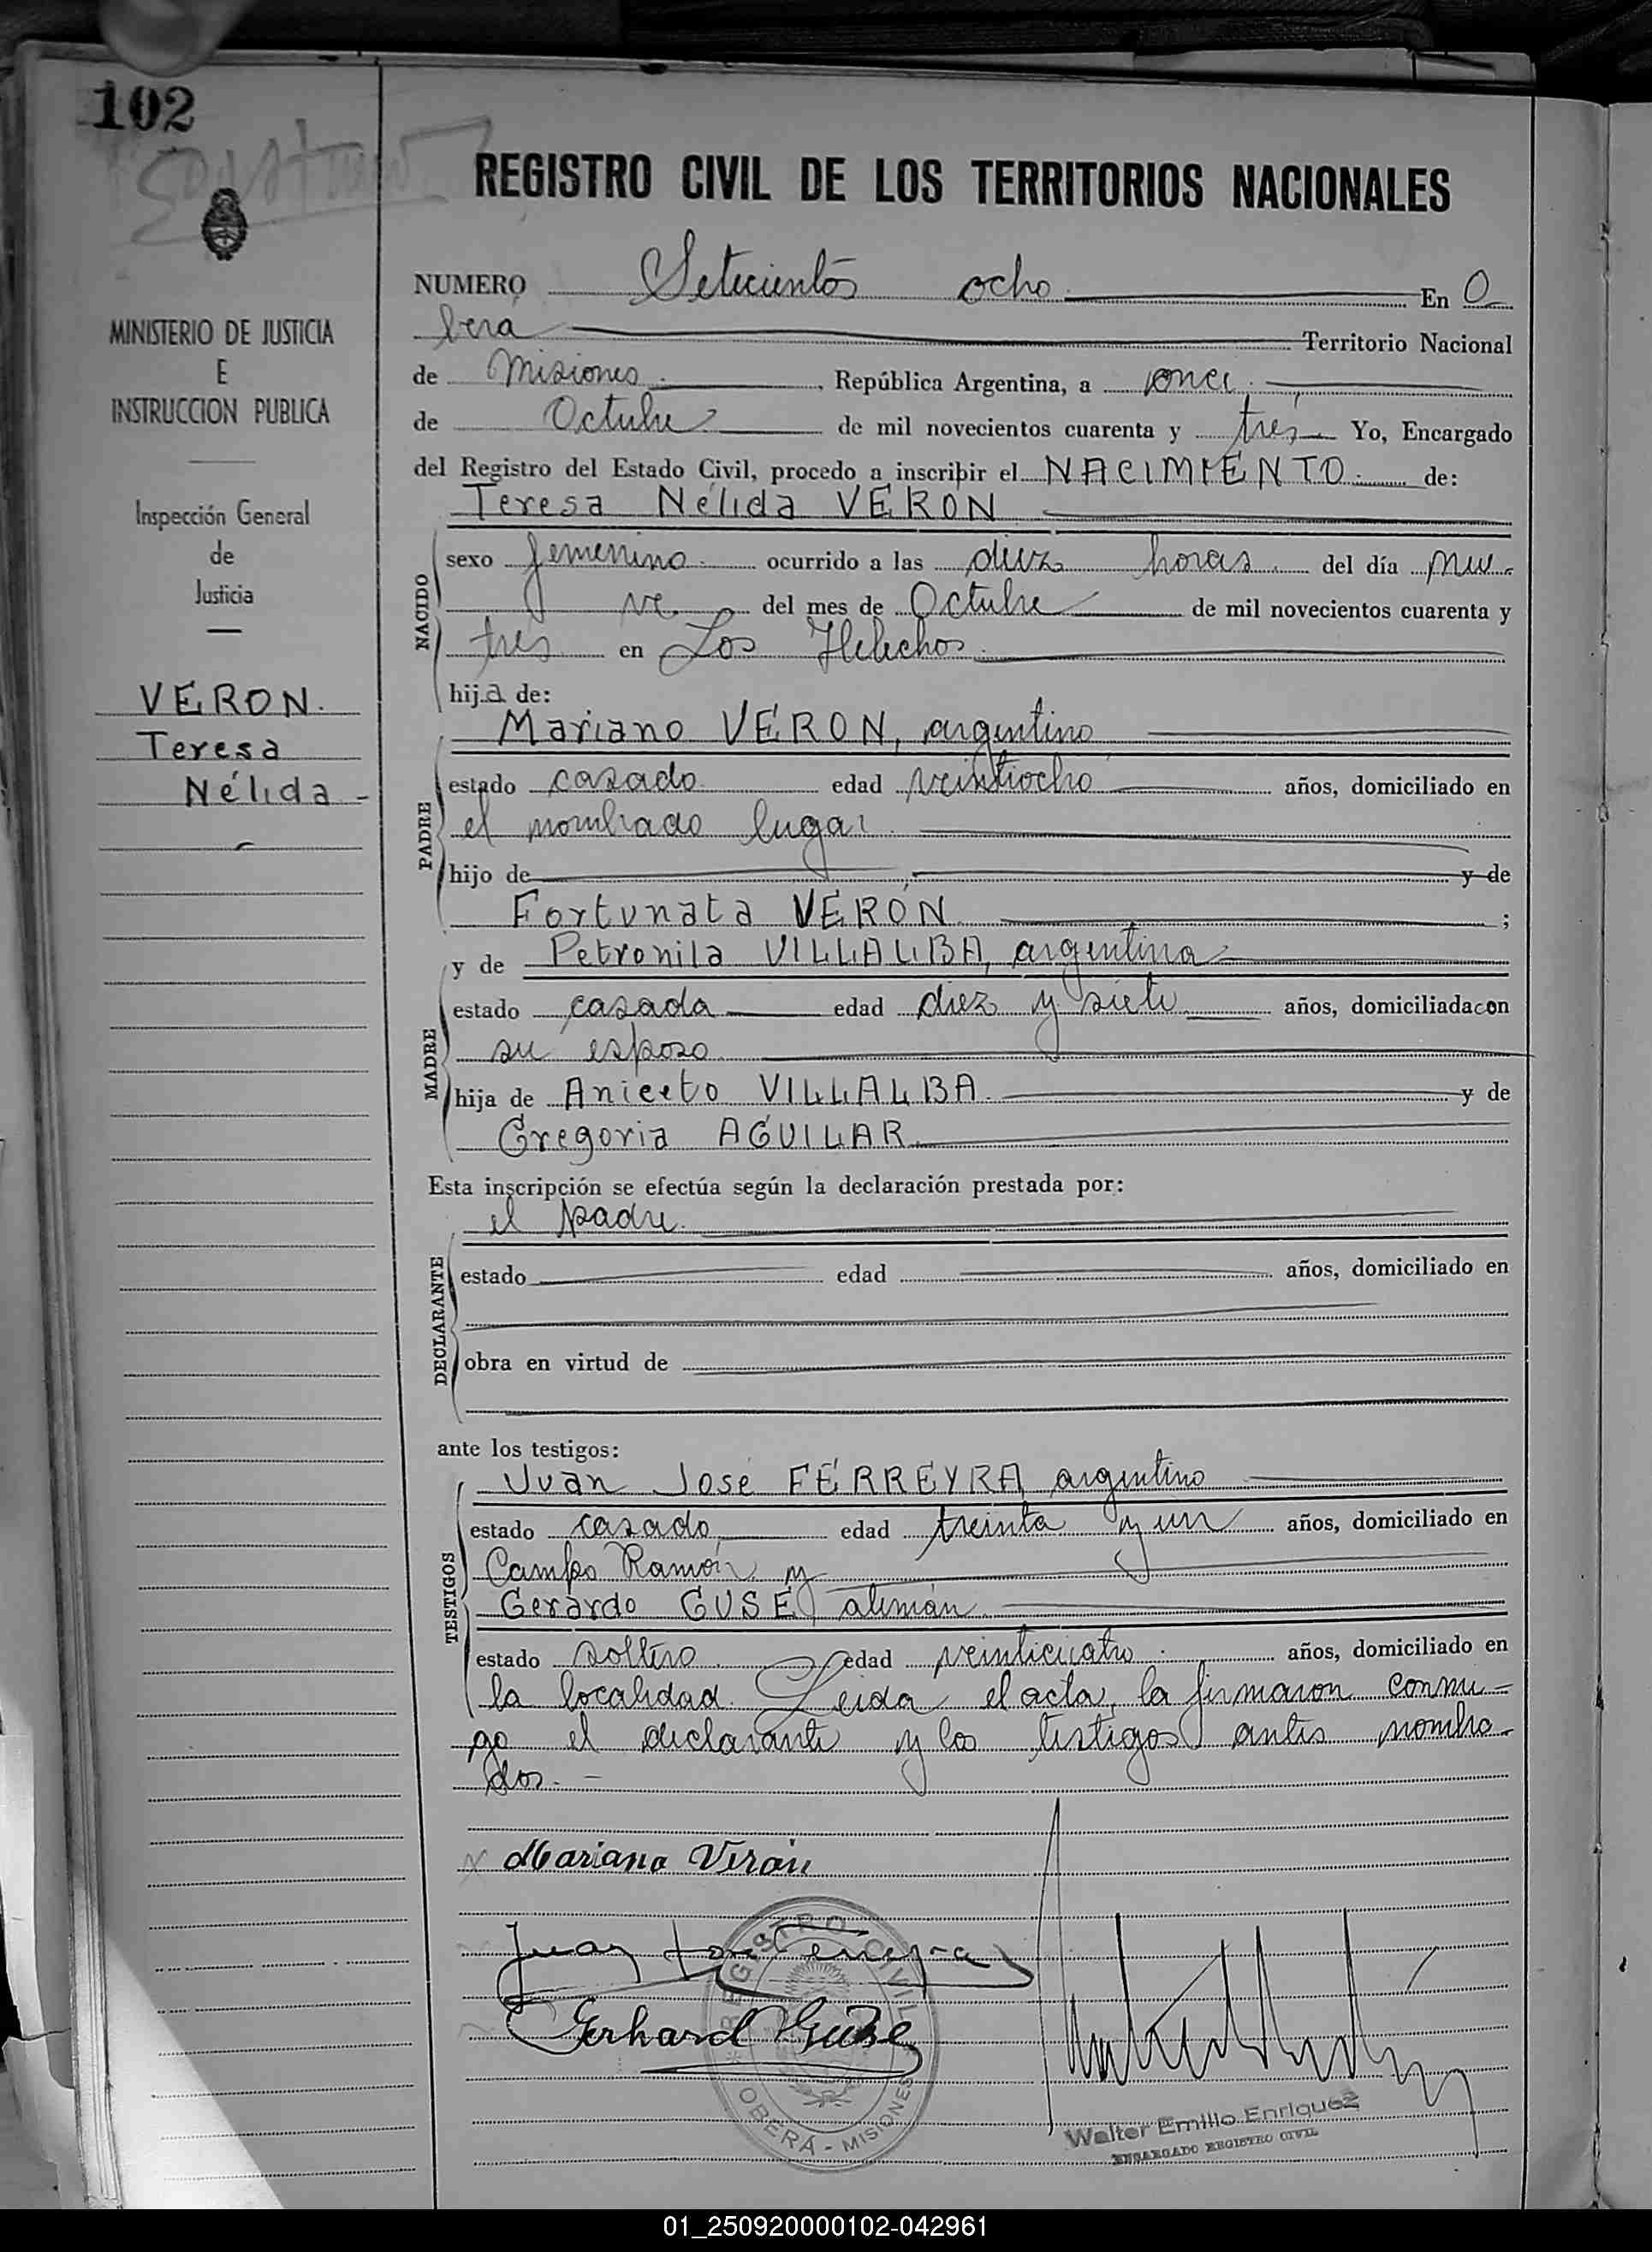 102
REGISTRO CIVIL DE LOS TERRITORIOS NACIONALES
MINISTERIO DE JUSTICIA
E
INSTRUCCION PUBLICA
Inspección General
de
Justicia
VERON.
Teresa
Nélida -
NUMERO Setecientos ocho En O
bera Territorio Nacional
de Misiones República Argentina, a once
de Octubre de mil novecientos cuarenta y tres Yo, Encargado
del Registro del Estado Civil, procedo a inscribir el NACIMIENTO de:
Teresa Nélida VERON
NACIDO
sexo femenino ocurrido a las diez horas del día nue-
ve del mes de Octubre de mil novecientos cuarenta y
tres en Los Helechos
hija de:
Mariano VERON, argentino
PADRE
estado casado edad veintiocho años, domiciliado en
el nombrado lugar
hijo de y de
Fortunata VERON ;
y de Petronila VILLALBA, argentina
MADRE
estado casada edad diez y siete años, domiciliada con
su esposo
hija de Aniceto VILLALBA y de
Gregoria AGUILAR
Esta inscripción se efectúa según la declaración prestada por:
el padre
DECLARANTE
estado edad años, domiciliado en
obra en virtud de
ante los testigos:
Juan José FERREYRA, argentino
TESTIGOS
estado casado edad treinta y un años, domiciliado en
Campo Ramón y
Gerardo GUSE, alemán
estado soltero edad veinticuatro años, domiciliado en
la localidad. Leida el acta, la firmaron conmi-
go el declarante y los testigos antes nombra-
dos. -
x Mariano Verón
Juan José Ferreyra
Gerhard Guse
REGISTRO CIVIL
OBERÁ - MISIONES
Walter Emilio Enriquez
ENCARGADO REGISTRO CIVIL
01_250920000102-042961